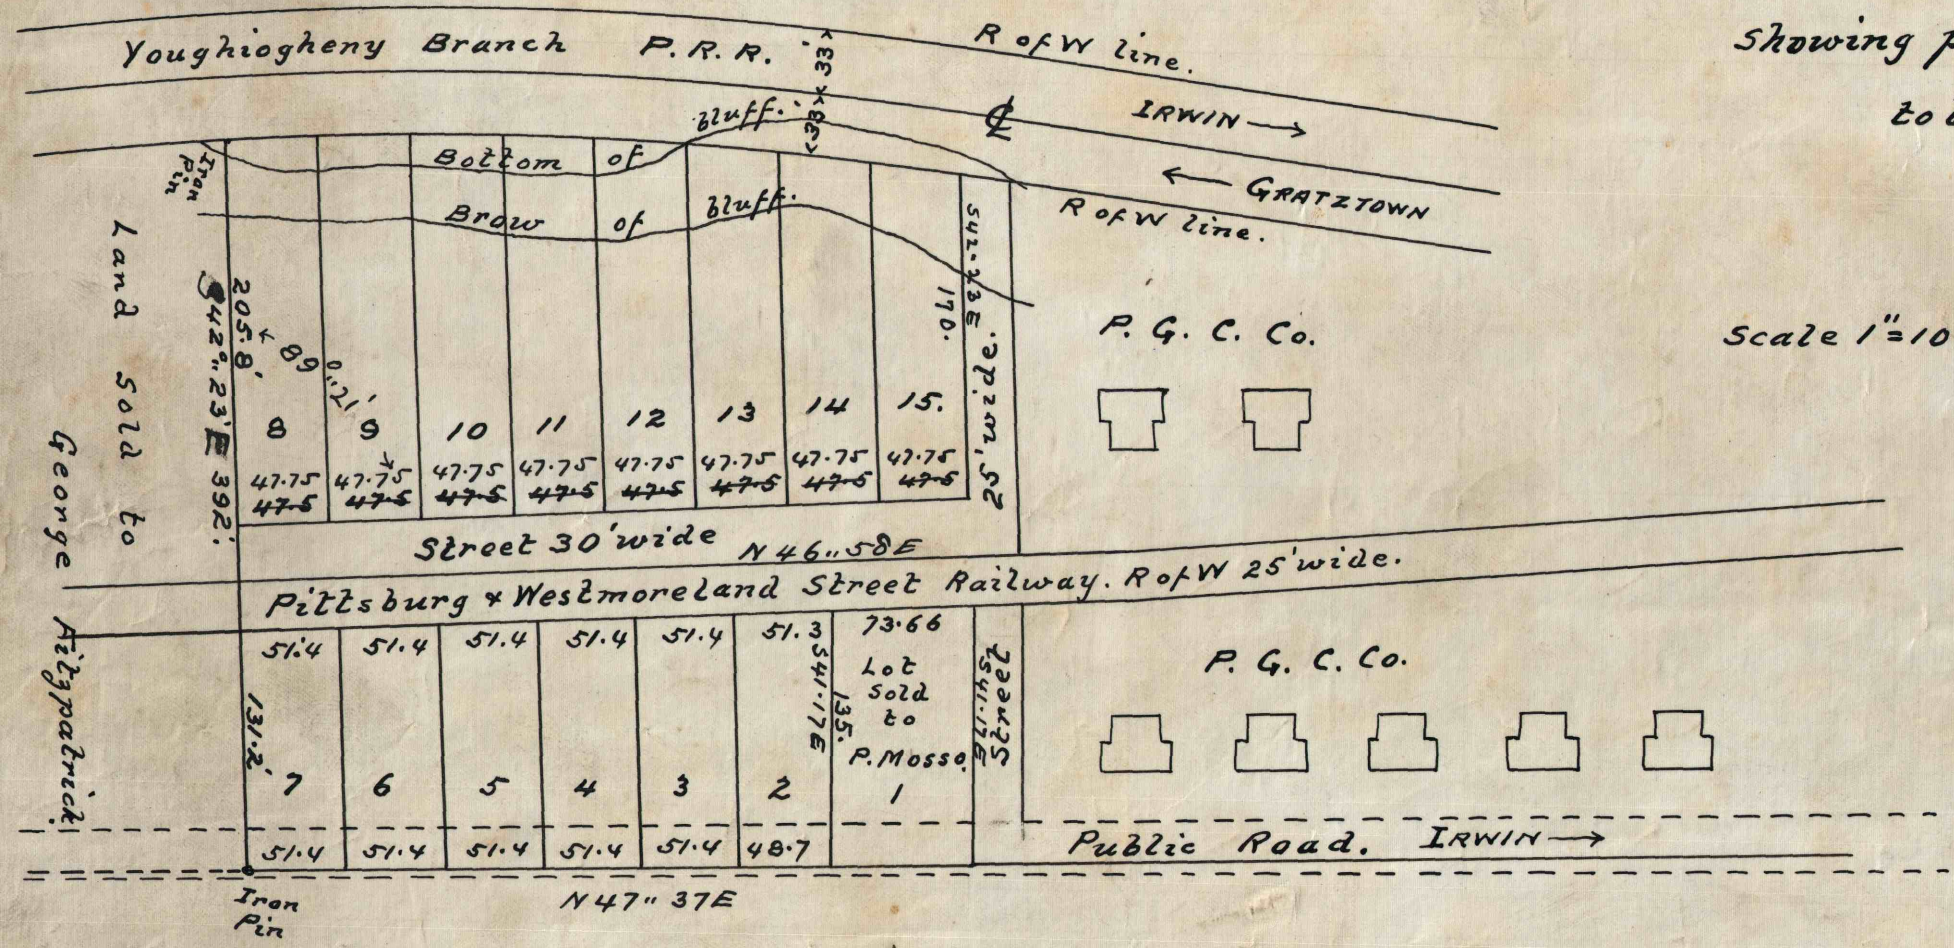 Youghiogheny Branch P.R.R.
33'
33'
R of W line.
Showing
IRWIN
₵
GRATZTOWN
R of W line.
Iron
Pin
Bottom of bluff.
Brow of bluff.
Land sold to
George Fitzpatrick.
S 42°" 23' E 392'.
205.8'
89°" 21'
S42-23 E
170.
25' wide.
8 9 10 11 12 13 14 15.
47.75 47.75 47.75 47.75 47.75 47.75 47.75 47.75
47.5 47.5 47.5 47.5 47.5 47.5 47.5 47.5
P. G. C. Co.
Scale 1"=10
Street 30' wide N 46" 58 E
Pittsburg & Westmoreland Street Railway. R of W 25' wide.
51.4 51.4 51.4 51.4 51.4 51.3 73.66
131.2'
S41.17 E
135.
Lot
Sold
to
P. Mosso.
Street
S41.17 E
P. G. C. Co.
7 6 5 4 3 2 1
51.4 51.4 51.4 51.4 51.4 48.7
Public Road. IRWIN
Iron
Pin
N 47" 37 E